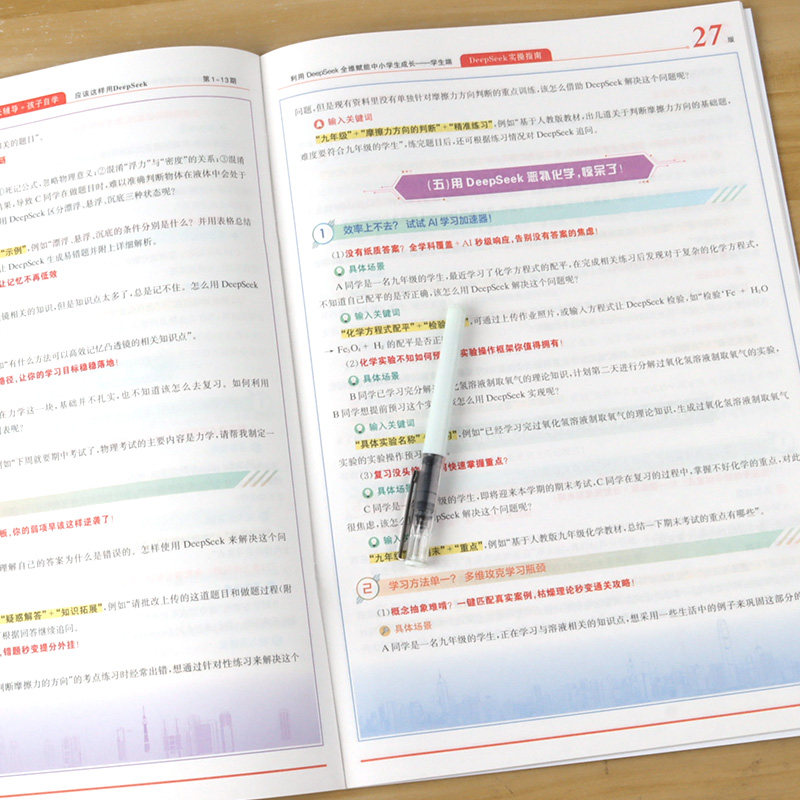 辅导·孩子自学
应该这样用DeepSeek
第1-13期
相关的题目”。
①死记公式,忽略物理意义;②混淆“浮力”与“密度”的关系;③混淆
果,导致C同学在做题目时,难以准确判断物体在液体中会处于
用 DeepSeek 区分漂浮、悬浮、沉底三种状态呢?
“示例”,例如“漂浮、悬浮、沉底的条件分别是什么?并用表格总结
让 DeepSeek 生成易错题并附上详细解析。
让记忆不再低效
镜相关的知识,但是知识点太多了,总是记不住。怎么用 DeepSeek
如“有什么方法可以高效记忆凸透镜的相关知识点”。
路径,让你的学习目标稳稳落地!
在力学这一块,基础并不扎实,也不知道该怎么去复习。如何利用
列表呢?
例如“下周就要期中考试了,物理考试的主要内容是力学,请帮我制定一
板,你的弱项早该这样逆袭了!
理解自己的答案为什么是错误的。怎样使用 DeepSeek 来解决这个问
“疑惑解答”+“知识拓展”,例如“请批改上传的这道题目和做题过程(附
根据回答继续追问。
错题秒变提分外挂!
判断摩擦力的方向”的考点练习时经常出错,想通过针对性练习来解决这个
利用 DeepSeek 全维赋能中小学生成长——学生端
DeepSeek实操指南
27版
问题,但是现有资料里没有单独针对摩擦力方向判断的重点训练,该怎么借助 DeepSeek 解决这个问题呢?
输入关键词
“九年级”+“摩擦力方向的判断”+“精准练习”,例如“基于人教版教材,出几道关于判断摩擦力方向的基础题,
难度要符合九年级的学生”,练完题目后,还可根据练习情况对 DeepSeek 追问。
(五)用 DeepSeek 恶补化学,惊呆了!
1 效率上不去?试试 AI 学习加速器!
(1)没有纸质答案?全学科覆盖+AI 秒级响应,告别没有答案的焦虑!
具体场景
A 同学是一名九年级的学生,最近学习了化学方程式的配平,在完成相关练习后发现对于复杂的化学方程式,
不知道自己配平的是否正确,该怎么用 DeepSeek 解决这个问题呢?
输入关键词
“化学方程式配平”+“检验 ,可通过上传作业照片,或输入方程式让 DeepSeek 检验,如“检验‘Fe + H₂O
→ Fe₃O₄ + H₂ 的配平是否正
(2)化学实验不知如何预 实验操作框架你值得拥有!
具体场景
B 同学已学习完分解 化氢溶液制取氧气的理论知识,计划第二天进行分解过氧化氢溶液制取氧气的实验,
B 同学想提前预习这个实 该怎么用 DeepSeek 实现呢?
输入关键词
“具体实验名称” ,例如“已经学习完过氧化氢溶液制取氧气的理论知识,生成过氧化氢溶液制取氧气
实验的实验操作预习
(3)复习没头 快速掌握重点?
具体场景
C 同学是 级的学生,即将迎来本学期的期末考试,C同学在复习的过程中,掌握不好化学的重点,对此
很焦虑,该怎么 DeepSeek 解决这个问题呢?
输入
“九年 末”+“重点”,例如“基于人教版九年级化学教材,总结一下期末考试的重点有哪些”。
2 学习方法单一?多维攻克学习瓶颈
(1)概念抽象难啃?一键匹配真实案例,枯燥理论秒变通关攻略!
具体场景
A 同学是一名九年级的学生,正在学习与溶液相关的知识点,想采用一些生活中的例子来巩固这部分的